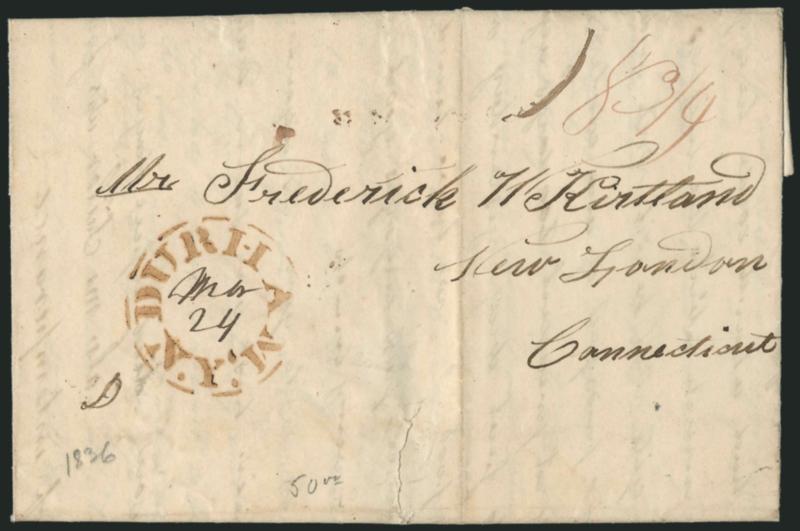 18 3/4
Mr Frederick W Kirtland
New London
Connecticut
DURHAM. N.Y.
Mar
24
D
1836
50